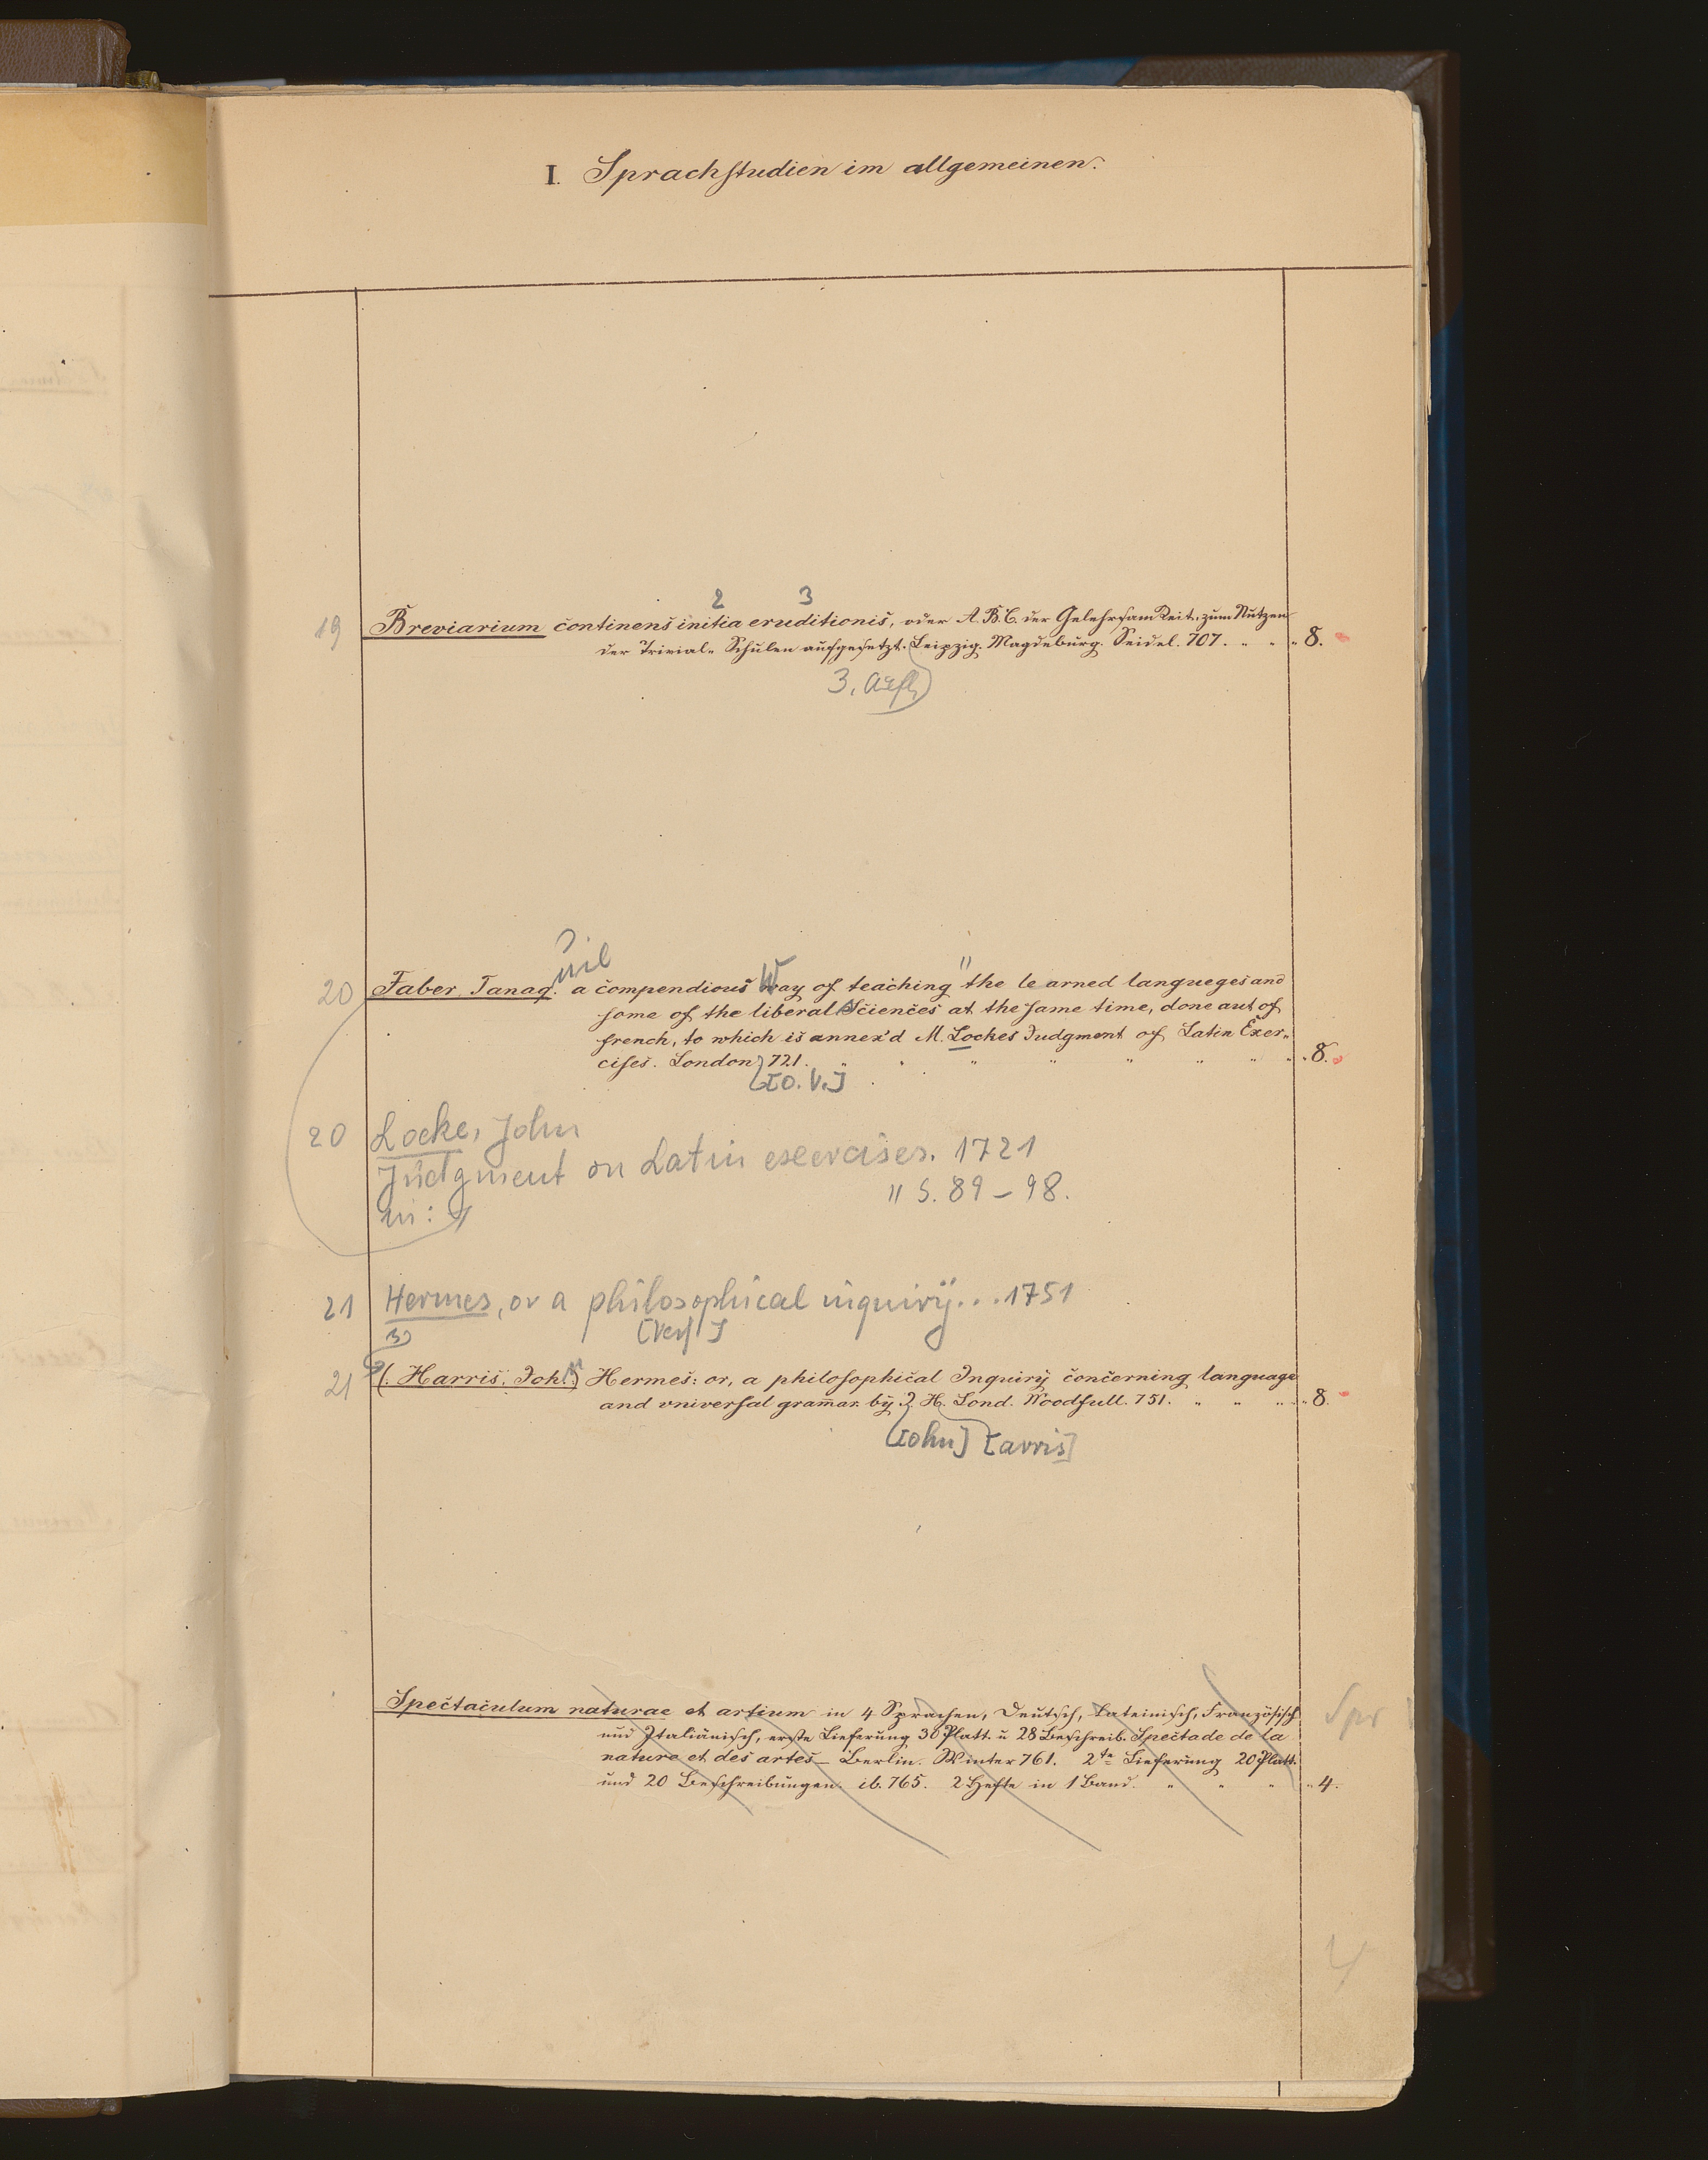 I. Sprachstudien im allgemeinen.
2 3
19 Breviarium continens initia eruditionis, oder A.B.C. der Gelehrsamkeit, zum Nutzen
der Trivial-Schulen aufgesetzt. Leipzig. Magdeburg. Seidel. 707. " " " 8.
3. Aufl.
uil
20 Faber, Tanaq. a compendious Way of teaching "the learned langueges and
some of the liberal Sciences at the same time, done aut of
french, to which is annex'd M. Lockes Judgment of Latin Exer-
cises. London 721. " " " " " " " 8.
[O. V.]
20 Locke, John
Judgment on Latin exercises. 1721
in: " S. 89-98.
21 Hermes, or a philosophical inquiry... 1751
[Verf]
21 (: Harris, Joh:) Hermes: or, a philosophical Inquiry concerning language
and vniversal gram̄ar. by J. H. Lond. Woodfull. 751. " " " " 8.
[ohn] [arris]
Spectaculum naturae et artium in 4 Sprachen, Deutsch, Lateinisch, Französisch
und Italiänisch, erste Lieferung 30 Platt. u 28 Beschreib. Spectade de la
nature et des artes_ Berlin. Winter 761. 2te Lieferung 20 Platt.
und 20 Beschreibungen. ib. 765. 2 Hefte in 1 Band. " " " " 4.
Spr
4